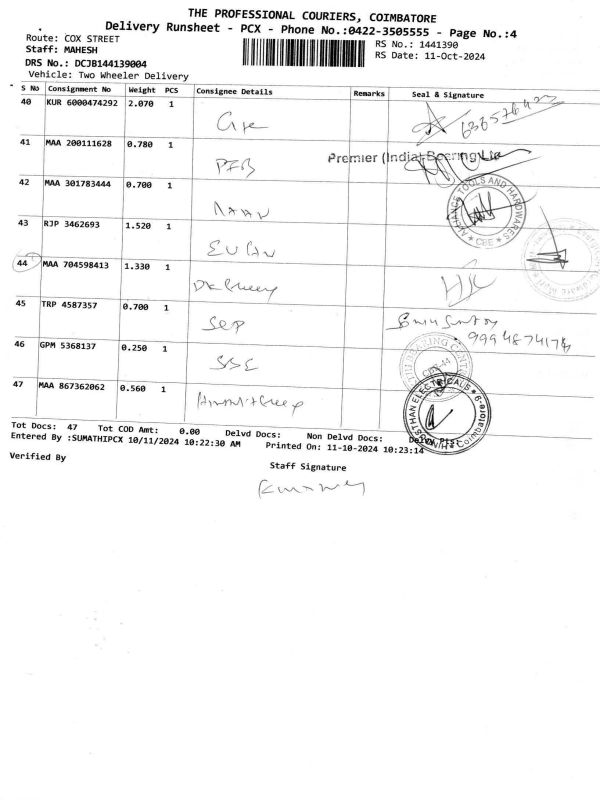 THE PROFESSIONAL COURIERS, COIMBATORE
Delivery Runsheet - PCX - Phone No.:0422-3505555 - Page No.:4
Route: COX STREET
RS No.: 1441390
Staff: MAHESH
RS Date: 11-Oct-2024
DRS No.: DCJB144139004
Vehicle: Two Wheeler Delivery
S No Consignment No Weight PCS Consignee Details Remarks Seal & Signature
40 KUR 6000474292 2.070 1
41 MAA 200111628 0.780 1
Premier (India) Bearing
PIB
42 MAA 301783444 0.700 1
ALLIANCE TOOLS AND HARDWARES
CBE
43 RJP 3462693 1.520 1
44 MAA 704598413 1.330 1
45 TRP 4587357 0.700 1
9994874174
46 GPM 5368137 0.250 1
SSE
47 MAA 867362062 0.560 1
HINDUSTHAN ELECTRICALS
Coimbatore
Tot Docs: 47 Tot COD Amt: 0.00 Delvd Docs: Non Delvd Docs:
Entered By :SUMATHIPCX 10/11/2024 10:22:30 AM Printed On: 11-10-2024 10:23:14
Verified By
Staff Signature